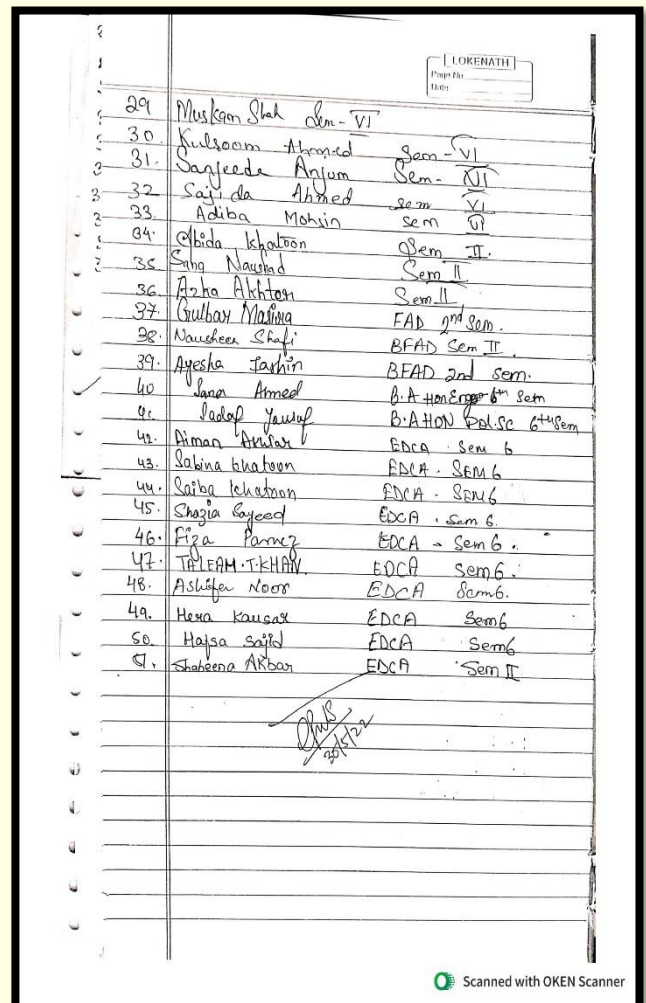 LOKENATH
Page No.
Date
29 Muskan Shah Sem-VI
30. Kulsoom Ahmed Sem-VI
31. Sanjeeda Anjum Sem- VI
32 Sajida Ahmed sem VI
33. Adiba Mohsin sem VI
34. Abida Khatoon Sem II.
35 Naushad Sem II
36. Azka Akhtar Sem II
37. Gulbar FAD 2nd Sem.
38. Nausheen Shafi BFAD Sem II
39. Ayesha BFAD 2nd Sem.
40 Sana Ahmed B.A Hon 6th Sem
41. Sadaf Yousuf B.A HON Pol.Sc 6th Sem
42. Aiman EDCA Sem 6
43. Sabina Khatoon EDCA - SEM 6
44. Saiba Khatoon EDCA - SEM 6
45. Shazia Sayeed EDCA . Sem 6.
46. Fiza Parvez EDCA - Sem 6.
47. TALEAM.T.KHAN. EDCA Sem 6.
48. Noor EDCA Sem 6.
49. Hera Kausar EDCA Sem 6
50. Hafsa Sajid EDCA Sem 6
51. Shaheena Akbar EDCA Sem II
30/5/22
Scanned with OKEN Scanner